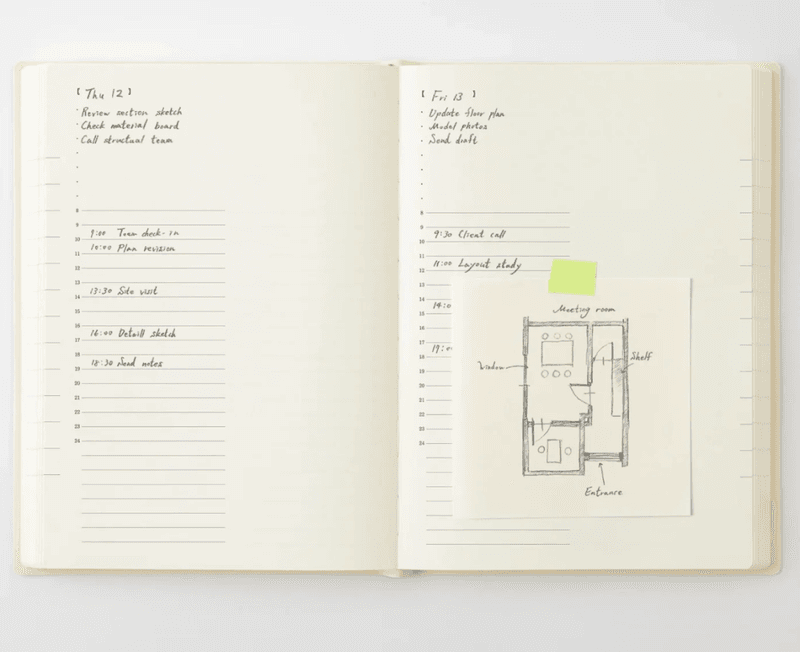 [ Thu 12 ]
· Review section sketch
· Check material board
· Call structual team
8
9
9:00 Team check-in
10
10:00 Plan revision
11
12
13
13:30 Site visit
14
15
16
16:00 Detaill sketch
17
18
18:30 Send notes
19
20
21
22
23
24
[ Fri 13 ]
· Update floor plan
· Model photos
· Send draft
8
9
9:30 Client call
10
11
11:00 Layout study
12
13
14
14:0
15
16
17
17:0
18
19
20
21
22
23
24
Meeting room
Window
Shelf
Entrance